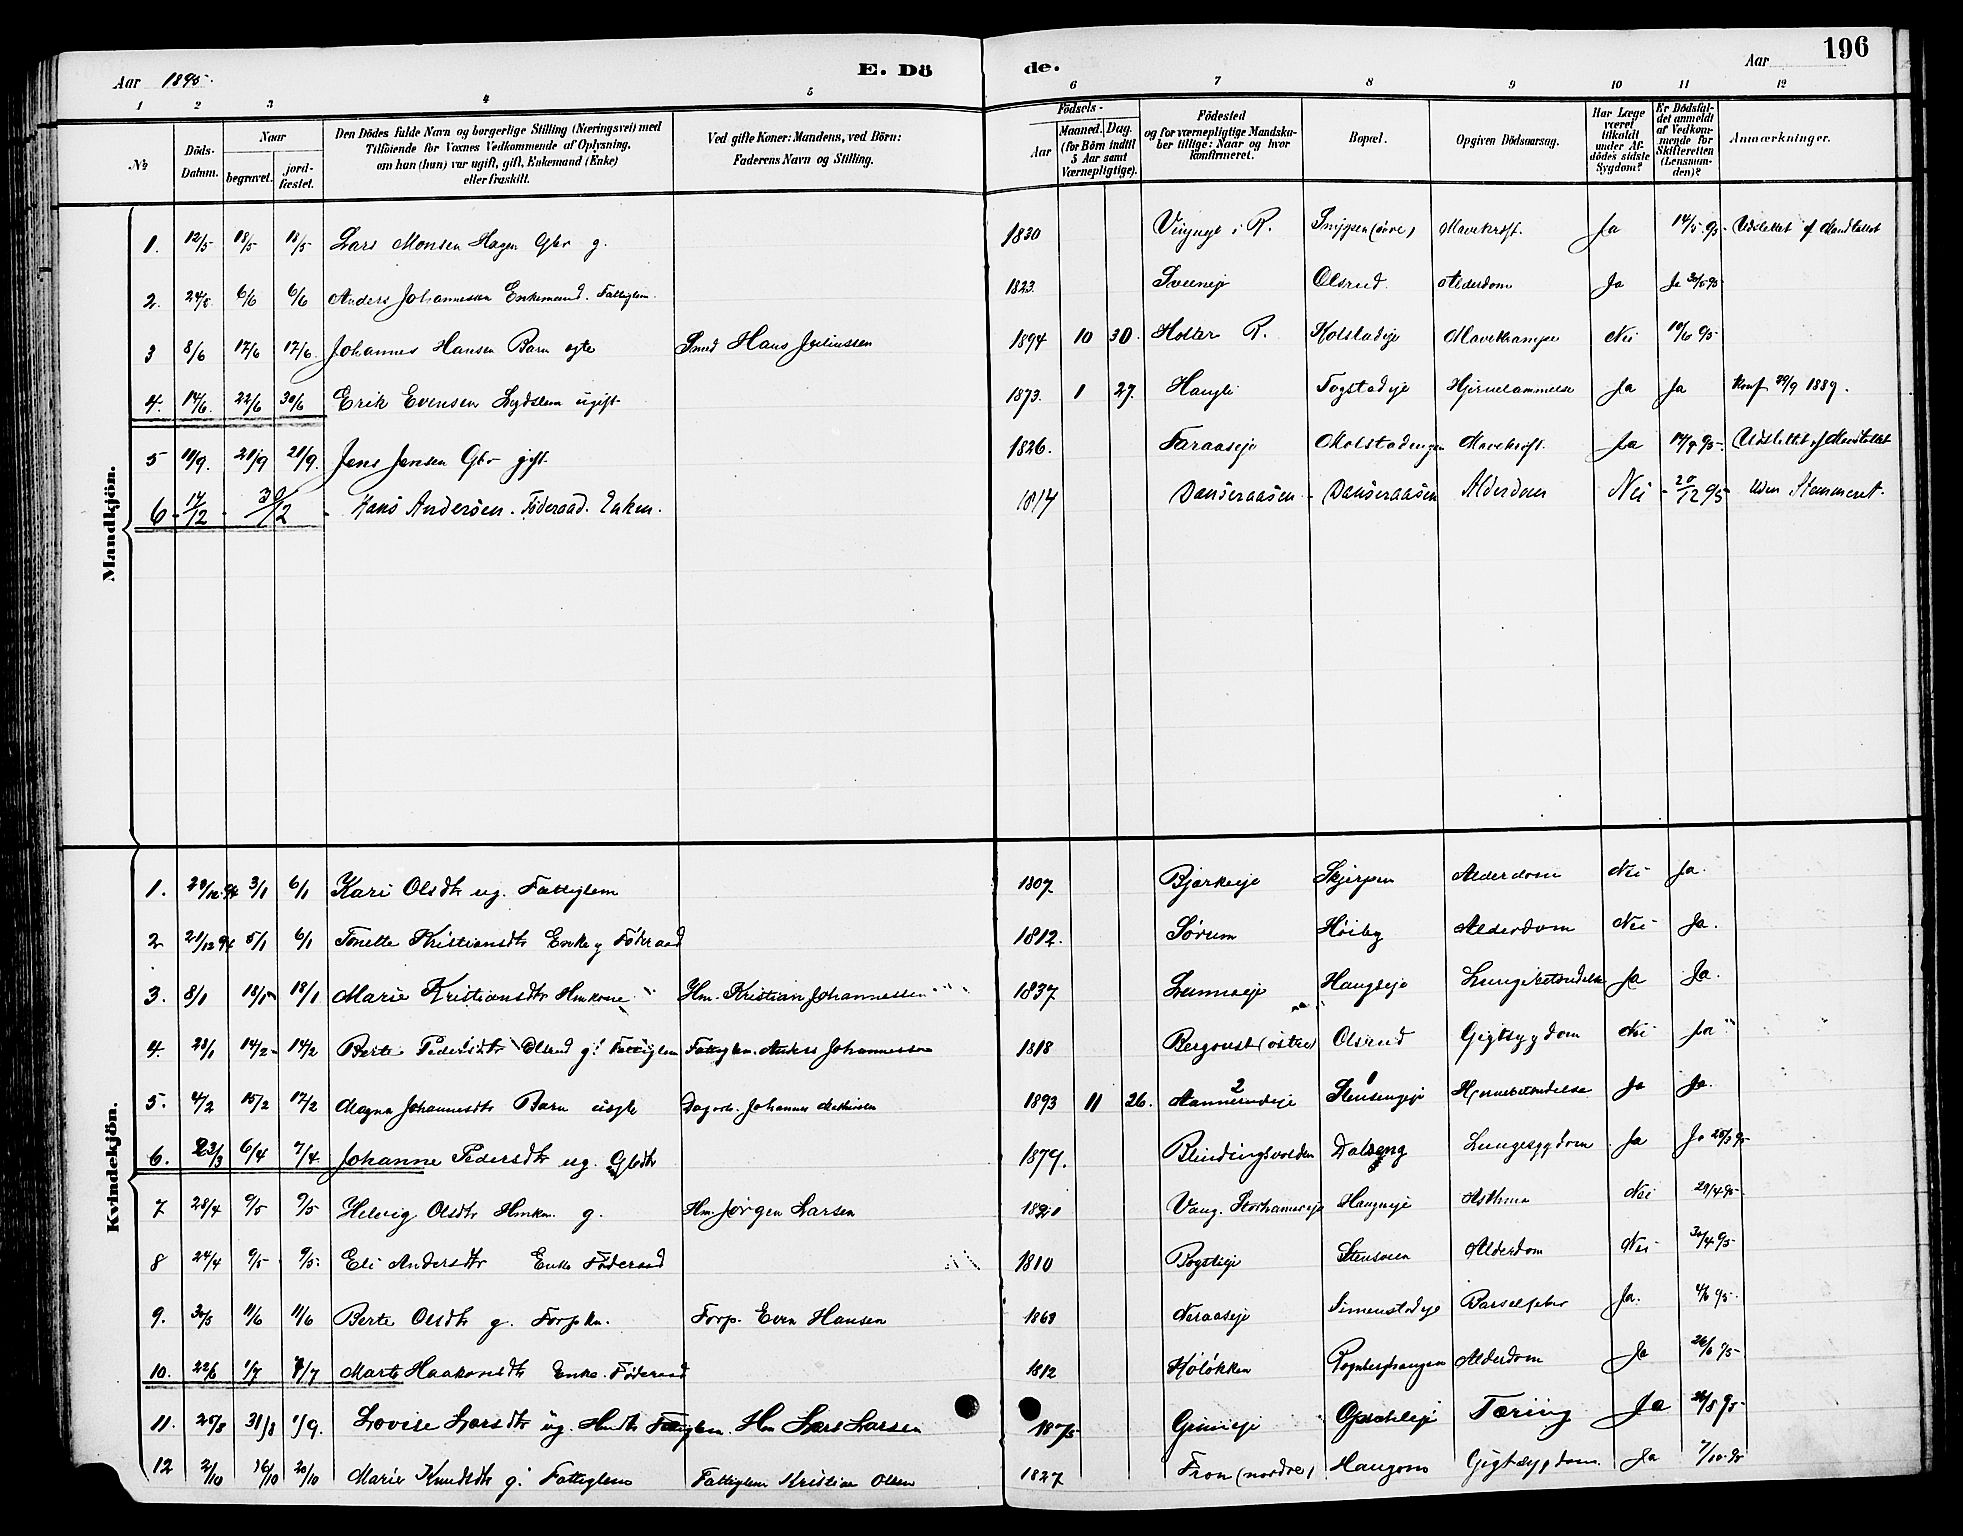 Aar 1895. E. Dö de. Aar 196
1 2 3 4 5 6 7 8 9 10 11 12
№ Döds-Datum. Naar begravet. jord-fæstet. Den Dödes fulde Navn og borgerlige Stilling (Næringsvei) med Tilföiende for Voxnes Vedkommende af Oplysning, om han (hun) var ugift, gift, Enkemand (Enke) eller fraskilt. Ved gifte Koner: Mandens, ved Börn: Faderens Navn og Stilling. Födsels- Aar Maaned. Dag. (for Börn indtil 5 Aar samt Værnepligtige). Födested og for værnepligtige Mandska-ber tillige: Naar og hvor konfirmeret. Bopæl. Opgiven Dödsaarsag. Har Læge været tilkaldt under Af-dödes sidste Sygdom? Er Dödsfal-det anmeldt af Vedkom-mende for Skifteretten (Lensman-den)? Anmærkninger.
Mandkjön.
1. 12/5 18/5 18/5 Lars Monsen Hagen Gbr g. 1830 R. Mavekræft. Ja 14/5 95
2. 6/6 6/6 Anders Johannessen Enkemand. Fattiglem. 1823. Sveeneje Olsrud. Alderdom Ja Ja 30/5 95
3 8/6 17/6 17/6. Johannes Hansen Barn egte Smed Hans Juliussen 1894 10 30. Holter R. Kolstadeje Mavekrampe Nei 19/6 95
4. 14/6. 22/6 30/6 Erik Evensen Lægdslem ugift 1873. 1 27. Haugli Fogstadeje Hjernelammelse Ja Ja Konf 29/9 1889.
5 21/9 21/9. Jens Jensen Gbr gift 1826. Faraaseje Mavekræft. Ja
6 - 17/12 - 30/12 - Hans Andersen. Föderaad. Enkem. 1814 Danseraasen - Danseraasen Alderdom Nei - 20/12 95 - uden
Kvindekjön.
1. 29/12.94 3/1 6/1 Kari Olsdtr ug. Fattiglem 1807. Bjerkeeje Skjerpen Alderdom Nei Ja.
2 21/12 94 5/1 6/1 Tonette Kristiansdtr Enke g Föderaad 1812. Sørum Höiby Alderdom Nei Ja.
3. 8/1 18/1 18/1 Marie Kristiansdtr Hmkone Hm. Kristian Johannessen 1837 Haugseje Lungebetændelse Ja Ja.
4. 28/1 14/2 14/2 Berte Pedersdtr Olsrud g. Fattiglem Fattiglem. Anders Johannessen 1818 Bergoust (østre) Olsrud Gigtsygdom Nei Ja
5. 15/2 17/2 Magna Johannesdtr Barn uegte Dagarb. Johannes Mathisen 1893 11 26. Hjernebetændelse Ja Ja.
6. 23/3 6/4 7/4 Johanne Pedersdtr ug. Gbdtr 1879. Blindingsvolden Dalseng Lungesygdom Ja Ja
7 28/4 9/5 9/5 Helvig Olsdtr Hmkn. g. Hm. Jørgen Larsen Vang. Asthma Nei 29/4 95
8 24/4 9/5 9/5 Eli Andersdtr Enke Föderaad 1810 Alderdom Nei 30/4 95
9. 30/5 11/6 11/6 Berte Olsdtr g. Forpkn. Forp. Even Hansen Neraaseje Simenstadeje Barselfeber Ja.
10. 22/6 1/7 Marte Haakonsdtr Enke. Föderaad 1812 Høløkken Alderdom Ja 26/6 95
11. 31/8 1/9. Lovise Larsdtr ug. Fattiglem. Hm Lars Larsen 1875 Tæring Ja
12 2/10 20/10 Marie Knudsdtr g. Fattiglem Fattiglem Kristian Olsen 1827 Fron (nordre) Haugom Gigtsygdom. Ja 7/10 95